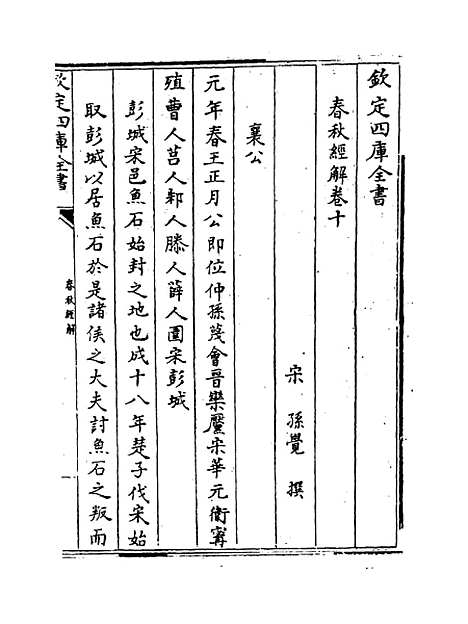 欽定四庫全書
春秋經解卷十
宋　孫覺　撰
襄公
元年春王正月公即位仲孫蔑會晉欒黶宋華元衛甯
殖曹人莒人邾人滕人薛人圍宋彭城
彭城宋邑魚石始封之地也成十八年楚子伐宋始
取彭城以居魚石於是諸侯之大夫討魚石之叛而
欽定四庫全書
春秋經解
一